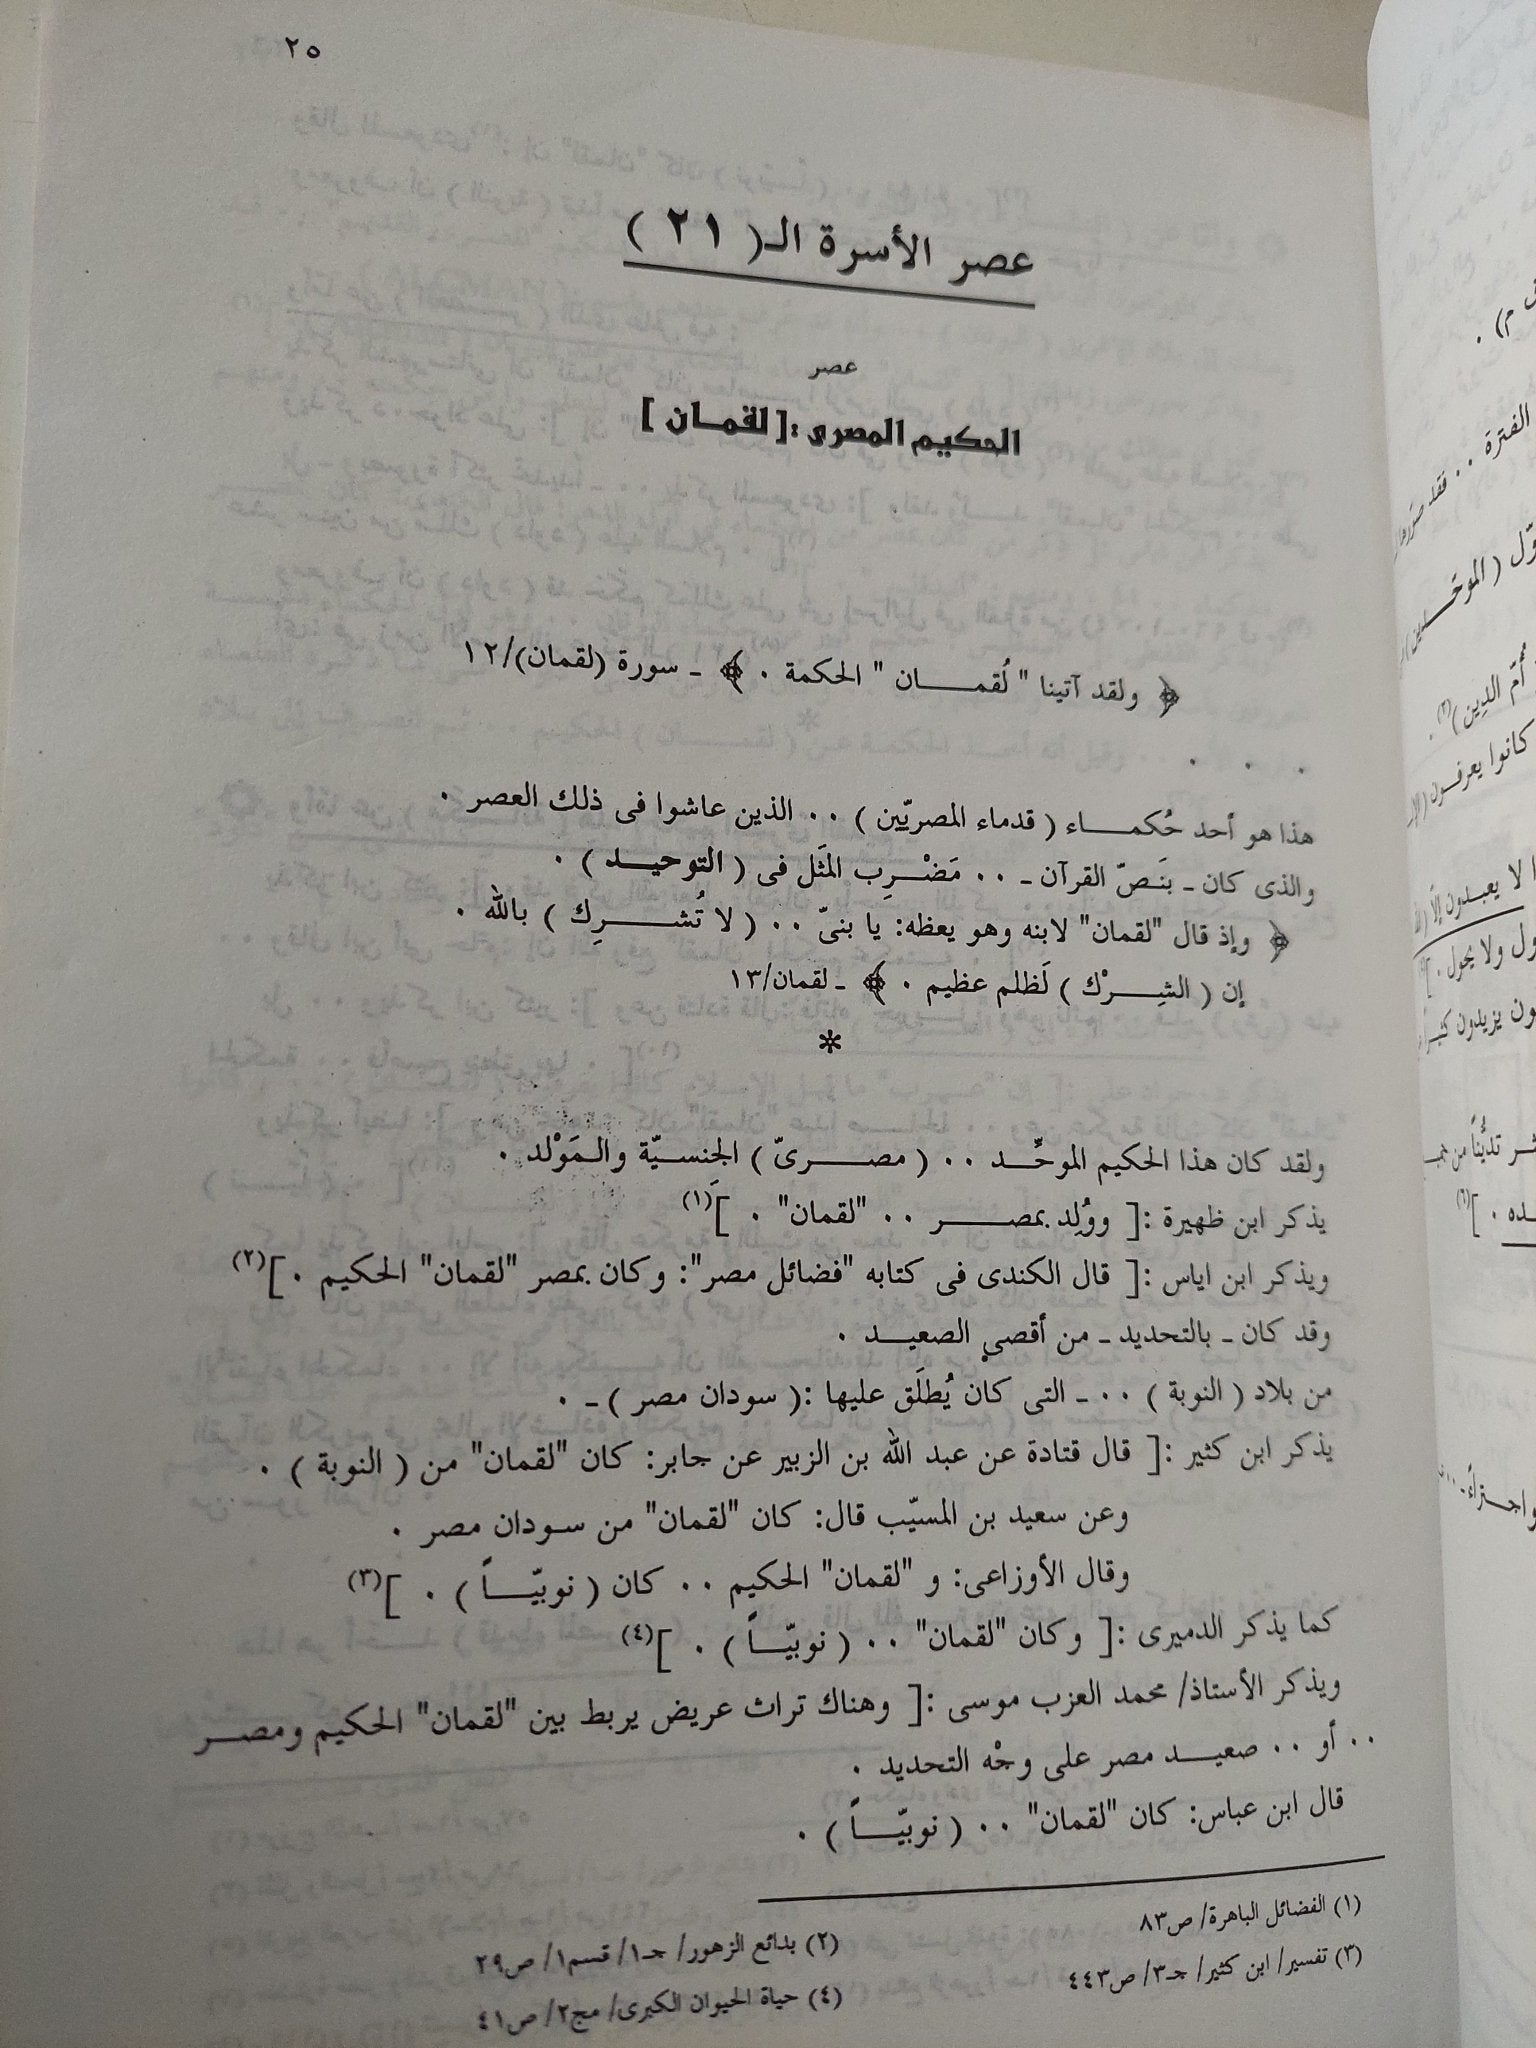 ٢٥
عصر الأسرة الـ( ٢١ )
عصر
الحكيم المصرى :[ لقمــان ]
﴿ ولقد آتينا " لُقمـــــان " الحكمة . ﴾ ـ سورة (لقمان)/١٢
. . .
هذا هو أحد حُكمـــاء ( قدماء المصريّين ) .. الذين عاشوا فى ذلك العصر .
والذى كان ـ بنَصّ القرآن ـ .. مَضْرِب المثَل فى ( التوحيــد ) .
﴿ وإذ قال "لقمان" لابنه وهو يعظه: يا بنىّ .. ( لا تُشــــرِك ) بالله .
إن ( الشِــرْك ) لَظلم عظيم . ﴾ ـ لقمان/١٣
*
ولقد كان هذا الحكيم الموحِّــد .. ( مصــــرىّ ) الجِنسيّة والـمَوْلد .
يذكر ابن ظهيرة :[ ووُلِد بمصــــــر .. "لقمان" . ](١)
ويذكر ابن اياس :[ قال الكندى فى كتابه "فضائل مصر": وكان بمصر "لقمان" الحكيم . ](٢)
وقد كان ـ بالتحديد ـ من أقصى الصعيــد .
من بلاد ( النوبة ) .. ـ التى كان يُطلَق عليها :( سودان مصر ) ـ .
يذكر ابن كثير :[ قال قتادة عن عبد الله بن الزبير عن جابر: كان "لقمان" من ( النوبة ) .
وعن سعيد بن المسيّب قال: كان "لقمان" من سودان مصر .
وقال الأوزاعى: و "لقمان" الحكيم .. كان ( نوبيّــــاً ) . ](٣)
كما يذكر الدميرى :[ وكان "لقمان" .. ( نوبيّــــاً ) . ](٤)
ويذكر الأستاذ/ محمد العزب موسى :[ وهناك تراث عريض يربط بين "لقمان" الحكيم ومصــر
.. أو .. صعيــد مصر على وجْه التحديد .
قال ابن عباس: كان "لقمان" .. ( نوبيّــــاً ) .
(١) الفضائل الباهرة/ ص٨٣
(٢) بدائع الزهور/ جـ١/ قسم١/ ص٢٩
(٣) تفسير/ ابن كثير/ جـ٣/ ص٤٤٣
(٤) حياة الحيوان الكبرى/ مج٢/ ص٤١
الفترة .. فقد
أُمّ الدِين)(٣) .
كانوا يعرفـون
لا يعبـدون إلّا
ول ولا يحول . ]
ون يزيدون